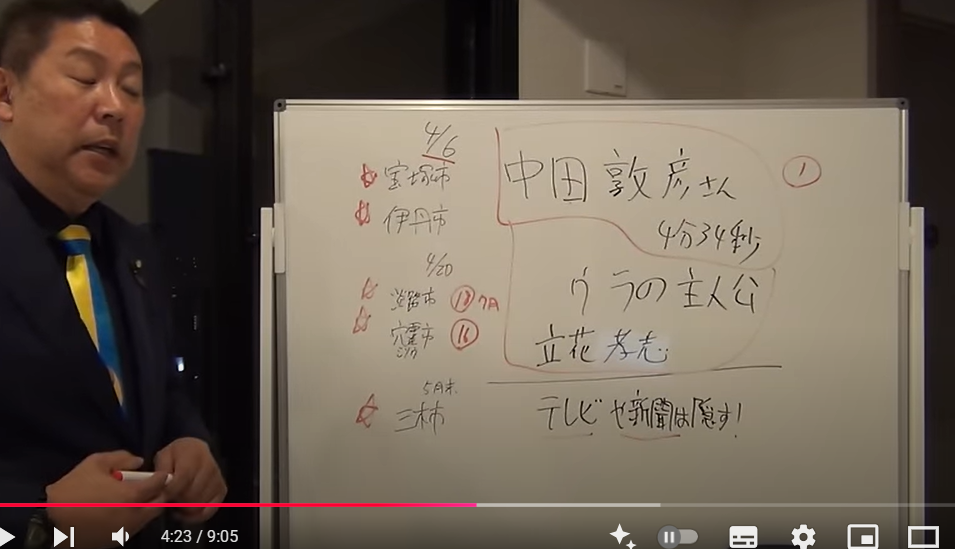 4/6
宝塚市
伊丹市
4/20
淡路市 18 7月
宍粟市 16
シソウ
5月末
三木市
中田敦彦さん
1
4分34秒
ウラの主人公
立花孝志
テレビや新聞は隠す!
4:23 / 9:05